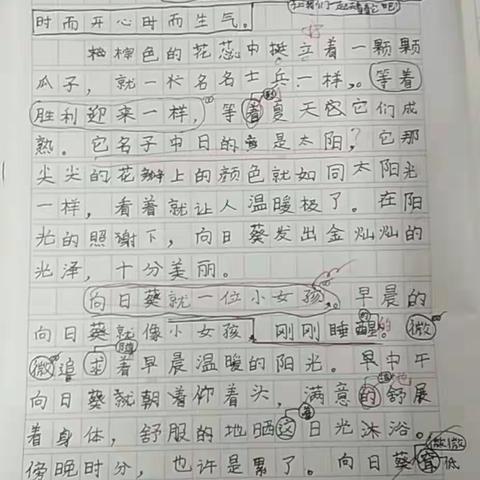 让我们一起去看看它吧
时而开心时而生气。
棕色的花蕊中挺立着一颗颗
瓜子，就一个名名士兵一样。等着
胜利迎来一样，等着夏天它们成
熟。它名子中日的是太阳？它那
尖尖的花瓣上的颜色就如同太阳光
一样，看着就让人温暖极了。在阳
光的照谢下，向日葵发出金灿灿的
光泽，十分美丽。
向日葵就一位小女孩。早晨的
向日葵就像小女孩 刚刚睡醒。微
微追求着早晨温暖的阳光。早中午
向日葵就朝着仰着头，满意的舒展
着身体，舒服的地晒这日光沐浴。
微微
傍晚时分，也许是累了。向日葵低